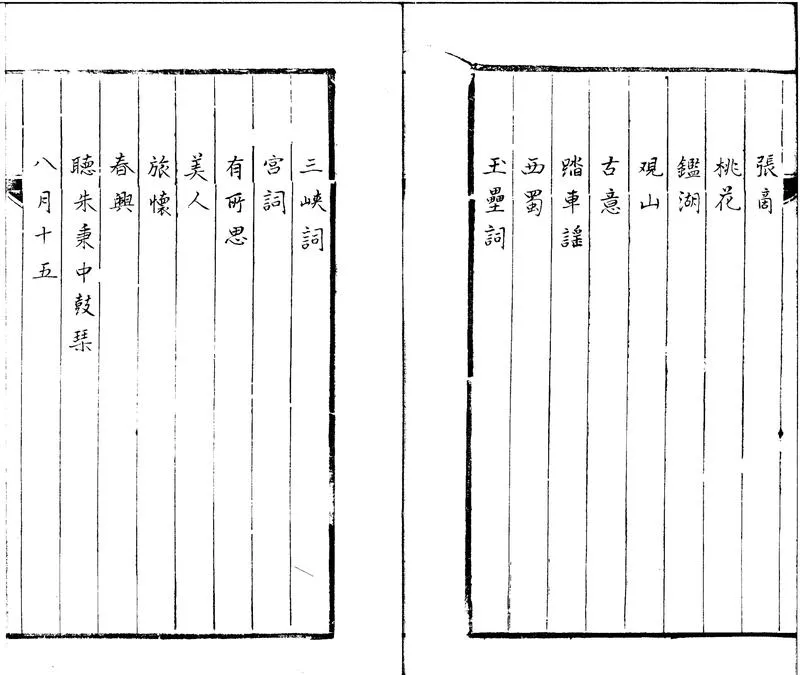 張啇
桃花
鑑湖
观山
古意
踏車謡
西蜀
玉壘詞
三峽詞
宮詞
有所思
美人
旅懷
春興
聽朱秉中鼓琹
八月十五